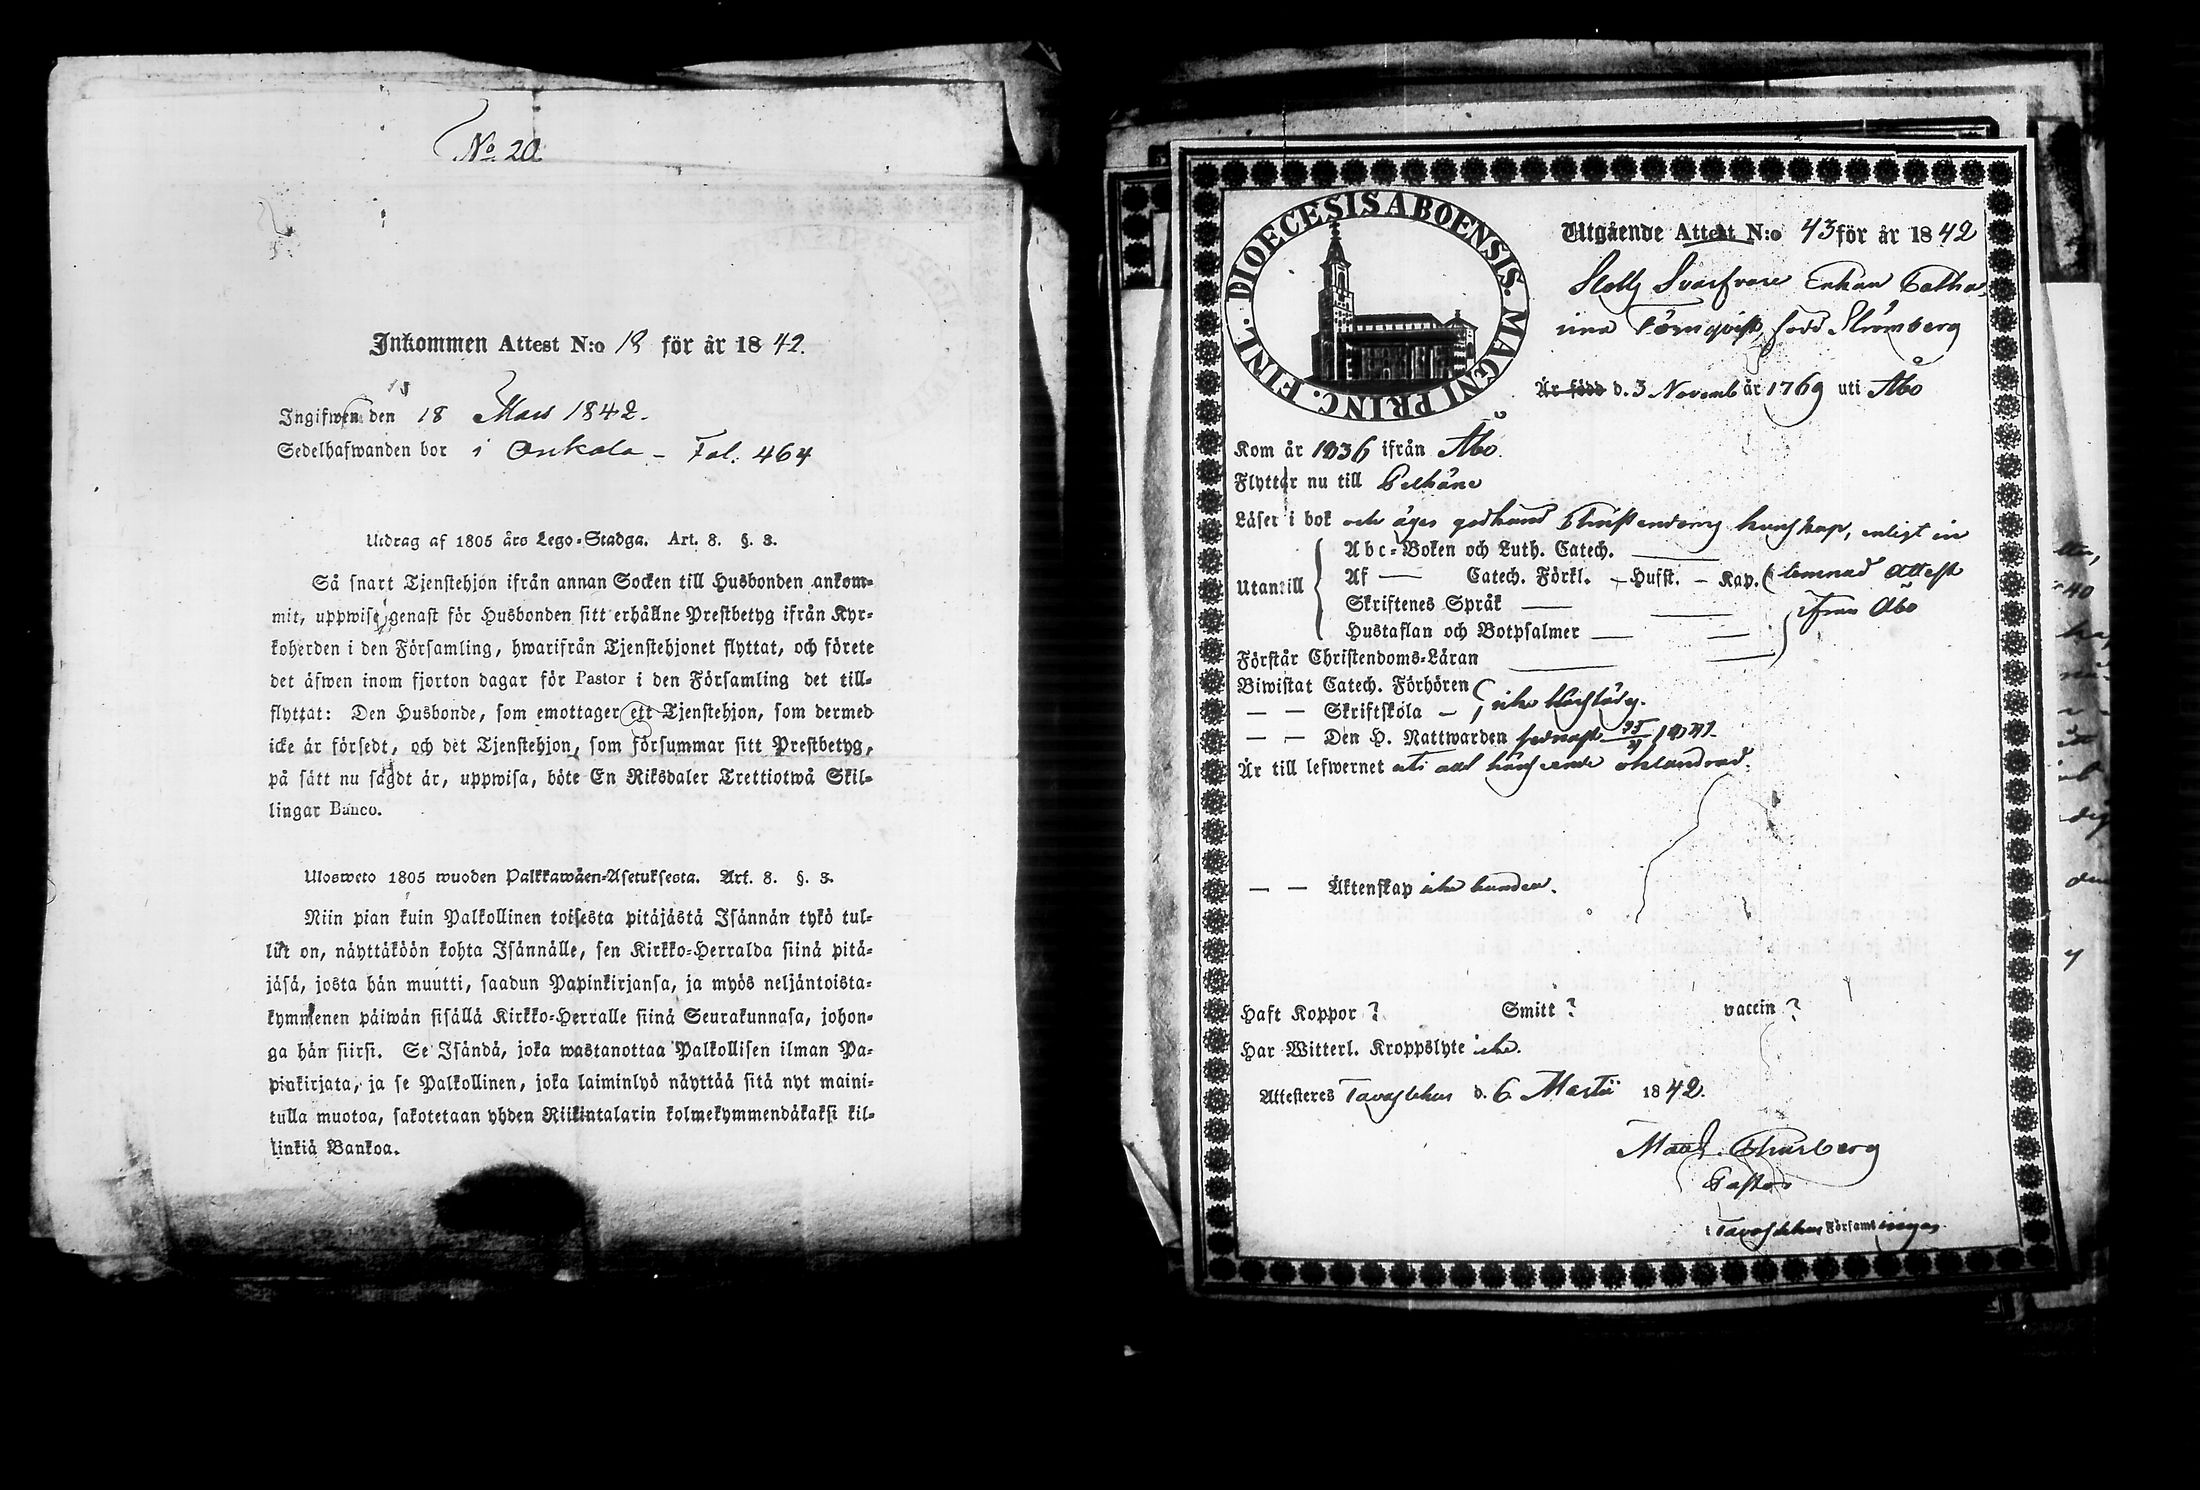 No 20.
Inkommen Attest N:o 19 för år 1842.
Ingifwen den 18 Mars 1842.
Sedelhafwanden bor i Onkala – Fol. 464
Utdrag af 1805 års Lego-Stadga. Art. 8. §. 3.
Så snart Tjenstehjon ifrån annan Socken till Husbonden ankom-
mit, uppwise genast för Husbonden sitt erhållne Prestbetyg ifrån Kyr-
koherden i den Församling, hwarifrån Tjenstehjonet flyttat, och förete
det äfwen inom fjorton dagar för Pastor i den Församling det till-
flyttat: Den Husbonde, som emottager ett Tjenstehjon, som dermed
icke är försedt, och det Tjenstehjon, som försummar sitt Prestbetyg,
på sätt nu sagdt är, uppwisa, böte En Riksdaler Trettiotwå Skil-
lingar Banco.
Ulosweto 1805 wuoden Palkkawäen-Asetuksesta. Art. 8. §. 3.
Niin pian kuin Palkollinen toisesta pitäjästä Isännän tykö tul-
lut on, näyttäköön kohta Isännälle, sen Kirkko-Herralda siinä pitä-
jäsä, josta hän muutti, saadun Papinkirjansa, ja myös neljäntoista-
kymmenen päiwän sisällä Kirkko-Herralle siinä Seurakunnasa, johon-
ga hän siirsi. Se Isändä, joka wastanottaa Palkollisen ilman Pa-
pinkirjata, ja se Palkollinen, joka laiminlyö näyttää sitä nyt maini-
tulla muotoa, sakotetaan yhden Riikintalarin kolmekymmendäkaksi kil-
linkiä Bankoa.
DIOECESIS ABOENSIS. MAGNI PRINC. FINL.
Utgående Attest N:o 43 för år 1842
Slotts Svarfvare Enkan Catha-
rina Törnqvist, född Strömberg
Är född d. 3 Novemb år 1769 uti Åbo
Kom år 1836 ifrån Åbo.
Flyttar nu till Pelkäne
Läser i bok och äger godkänd Christendoms kunskap, enligt in
Abc-Boken och Luth. Catech.
Utantill Af — Catech. Förkl. – Husst. – Kap. lemnad Attest
Skriftenes Språk ifrån Åbo
Hustaflan och Botpsalmer
Förstår Christendoms-Läran
Biwistat Catech. Förhören
— — Skriftskola –
— — Den H. Nattwarden senast 1841.
Är till lefwernet oklandrad.
— — Äktenskap icke bunden.
Haft Koppor ? Smitt ? vaccin ?
Har Witterl. Kroppslyte icke.
Attesteres Tavastehus d. 6 Martii 1842.
Thurberg
Pastor
i Tavastehus Församlingar.